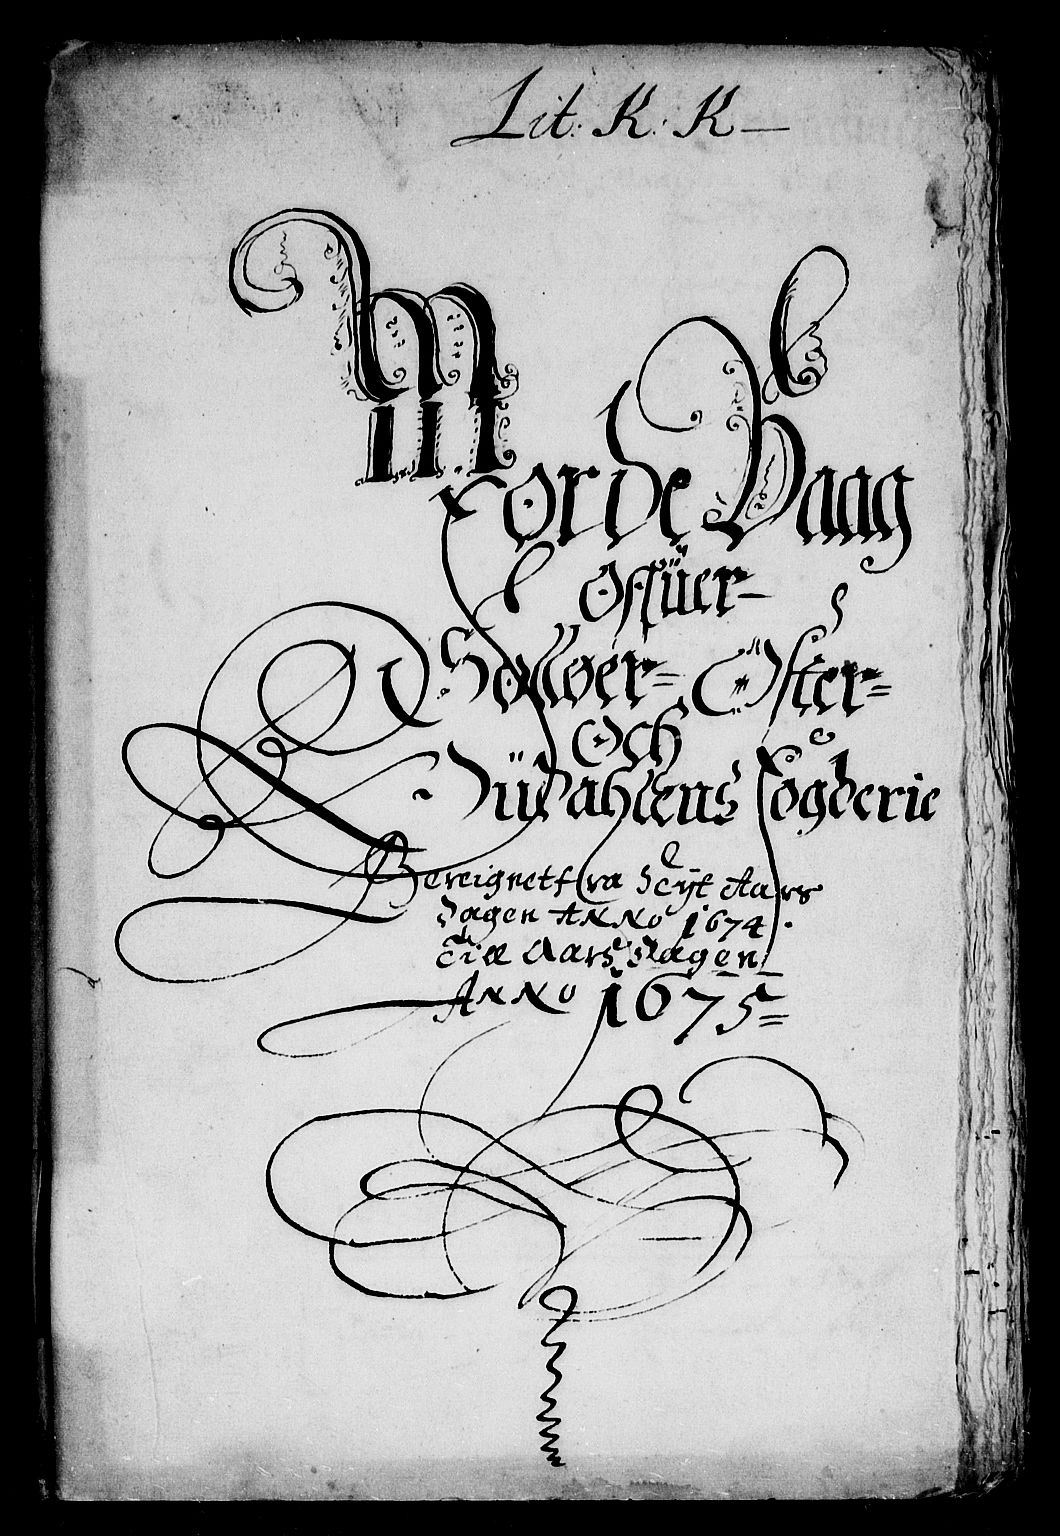 Lit. K. K
Morde Baag
Offüer
Solløer Øster
Och
Düdahlens fogderie
Bereignet fra Nyt Aars
Dagen Anno 1674.
Till Aars Dagen
Anno 1675